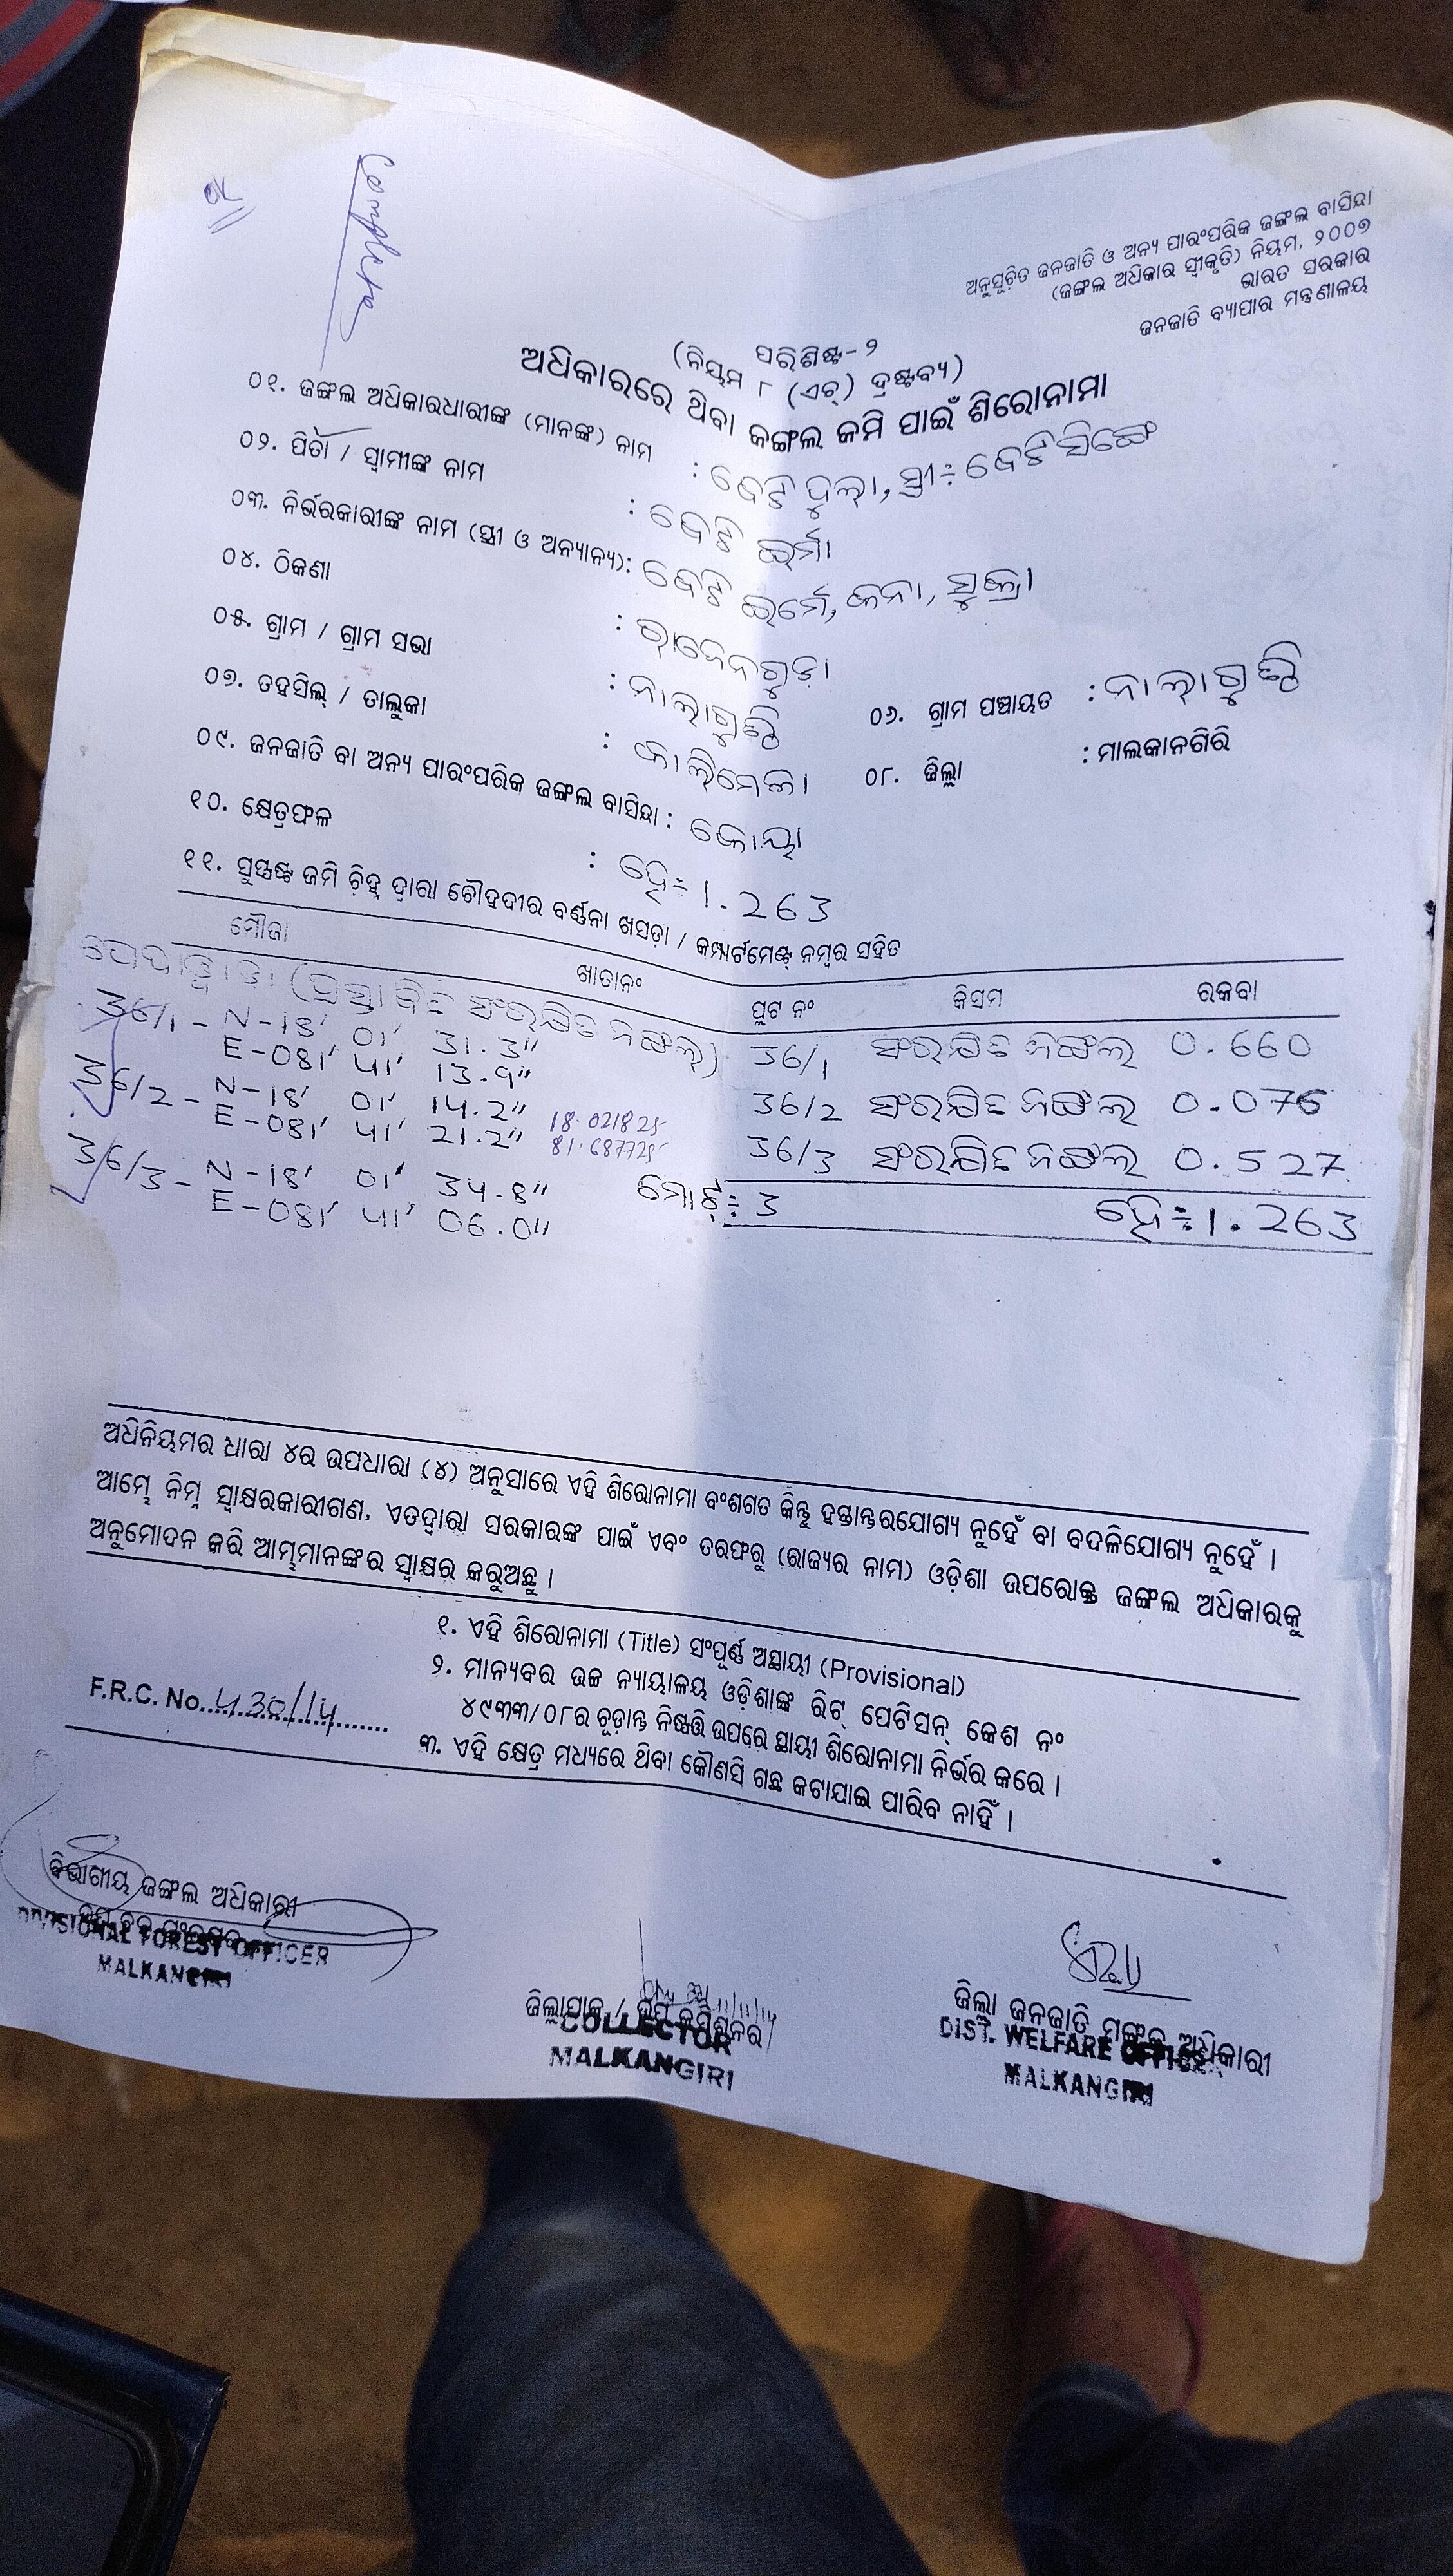 Complete
ଅନୁସୂଚିତ ଜନଜାତି ଓ ଅନ୍ୟ ପାରଂପରିକ ଜଙ୍ଗଲ ବାସିନ୍ଦା
(ଜଙ୍ଗଲ ଅଧିକାର ସ୍ୱୀକୃତି) ନିୟମ, ୨୦୦୭
ଭାରତ ସରକାର
ଜନଜାତି ବ୍ୟାପାର ମନ୍ତ୍ରଣାଳୟ
ପରିଶିଷ୍ଟ-୨
(ନିୟମ ୮ (ଏଚ୍) ଦ୍ରଷ୍ଟବ୍ୟ)
ଅଧିକାରରେ ଥିବା ଜଙ୍ଗଲ ଜମି ପାଇଁ ଶିରୋନାମା
୦୧. ଜଙ୍ଗଲ ଅଧିକାରଧାରୀଙ୍କ (ମାନଙ୍କ) ନାମ : ବେଟି ଦୁଲା, ସ୍ତ୍ରୀ÷ ବେଟି ସିଙ୍ଗେ
୦୨. ପିତା / ସ୍ୱାମୀଙ୍କ ନାମ : ବେଟି ଇର୍ମା
୦୩. ନିର୍ଭରକାରୀଙ୍କ ନାମ (ସ୍ତ୍ରୀ ଓ ଅନ୍ୟାନ୍ୟ): ବେଟି ଇର୍ମେ, କନା, ସୁକ୍ରା
୦୪. ଠିକଣା :
୦୫. ଗ୍ରାମ / ଗ୍ରାମ ସଭା : ନାଲାଗୁଣ୍ଠି ୦୬. ଗ୍ରାମ ପଞ୍ଚାୟତ : ନାଲାଗୁଣ୍ଠି
୦୭. ତହସିଲ୍ / ତାଲୁକା : କାଲିମେଳା ୦୮. ଜିଲ୍ଲା : ମାଲକାନଗିରି
୦୯. ଜନଜାତି ବା ଅନ୍ୟ ପାରଂପରିକ ଜଙ୍ଗଲ ବାସିନ୍ଦା : କୋୟା
୧୦. କ୍ଷେତ୍ରଫଳ : ହେ÷ 1.263
୧୧. ସୁସ୍ପଷ୍ଟ ଜମି ଚିହ୍ନ ଦ୍ୱାରା ଚୌହଦୀର ବର୍ଣ୍ଣନା ଖସଡ଼ା / କମ୍ପାର୍ଟମେଣ୍ଟ୍ ନମ୍ବର ସହିତ
ମୌଜା ଖାତାନଂ ପ୍ଲଟ ନଂ କିସମ ରକବା
(ପ୍ରସ୍ତାବିତ ସଂରକ୍ଷିତ ଜଙ୍ଗଲ)
36/1 - N-18' 01' 31.3" 36/1 ସଂରକ୍ଷିତ ଜଙ୍ଗଲ 0.660
E-081' 41' 13.9"
36/2 - N-18' 01' 14.2" 36/2 ସଂରକ୍ଷିତ ଜଙ୍ଗଲ 0.076
E-081' 41' 21.2"
18.021825
81.687725
36/3 - N-18' 01' 34.8" 36/3 ସଂରକ୍ଷିତ ଜଙ୍ଗଲ 0.527
E-081' 41' 06.0"
ମୋଟ୍÷ 3 ହେ÷1.263
ଅଧିନିୟମର ଧାରା ୪ର ଉପଧାରା (୪) ଅନୁସାରେ ଏହି ଶିରୋନାମା ବଂଶଗତ କିନ୍ତୁ ହସ୍ତାନ୍ତରଯୋଗ୍ୟ ନୁହେଁ ବା ବଦଳିଯୋଗ୍ୟ ନୁହେଁ ।
ଆମ୍ଭେ ନିମ୍ନ ସ୍ୱାକ୍ଷରକାରୀଗଣ, ଏତଦ୍ୱାରା ସରକାରଙ୍କ ପାଇଁ ଏବଂ ତରଫରୁ (ରାଜ୍ୟର ନାମ) ଓଡ଼ିଶା ଉପରୋକ୍ତ ଜଙ୍ଗଲ ଅଧିକାରକୁ
ଅନୁମୋଦନ କରି ଆମ୍ଭମାନଙ୍କର ସ୍ୱାକ୍ଷର କରୁଅଛୁ ।
୧. ଏହି ଶିରୋନାମା (Title) ସଂପୂର୍ଣ୍ଣ ଅସ୍ଥାୟୀ (Provisional)
୨. ମାନ୍ୟବର ଉଚ୍ଚ ନ୍ୟାୟାଳୟ ଓଡ଼ିଶାଙ୍କ ରିଟ୍ ପେଟିସନ୍ କେଶ ନଂ
୪୯୩୩/୦୮ର ଚୂଡ଼ାନ୍ତ ନିଷ୍ପତ୍ତି ଉପରେ ସ୍ଥାୟୀ ଶିରୋନାମା ନିର୍ଭର କରେ ।
୩. ଏହି କ୍ଷେତ୍ର ମଧ୍ୟରେ ଥିବା କୌଣସି ଗଛ କଟାଯାଇ ପାରିବ ନାହିଁ ।
F.R.C. No. 430/14
ବିଭାଗୀୟ ଜଙ୍ଗଲ ଅଧିକାରୀ
DIVISIONAL FOREST OFFICER
MALKANGIRI
ଜିଲ୍ଲାପାଳ / ଡିପୁଟି କମିଶନର
COLLECTOR
MALKANGIRI
ଜିଲ୍ଲା ଜନଜାତି ମଙ୍ଗଳ ଅଧିକାରୀ
DIST. WELFARE OFFICER
MALKANGIRI